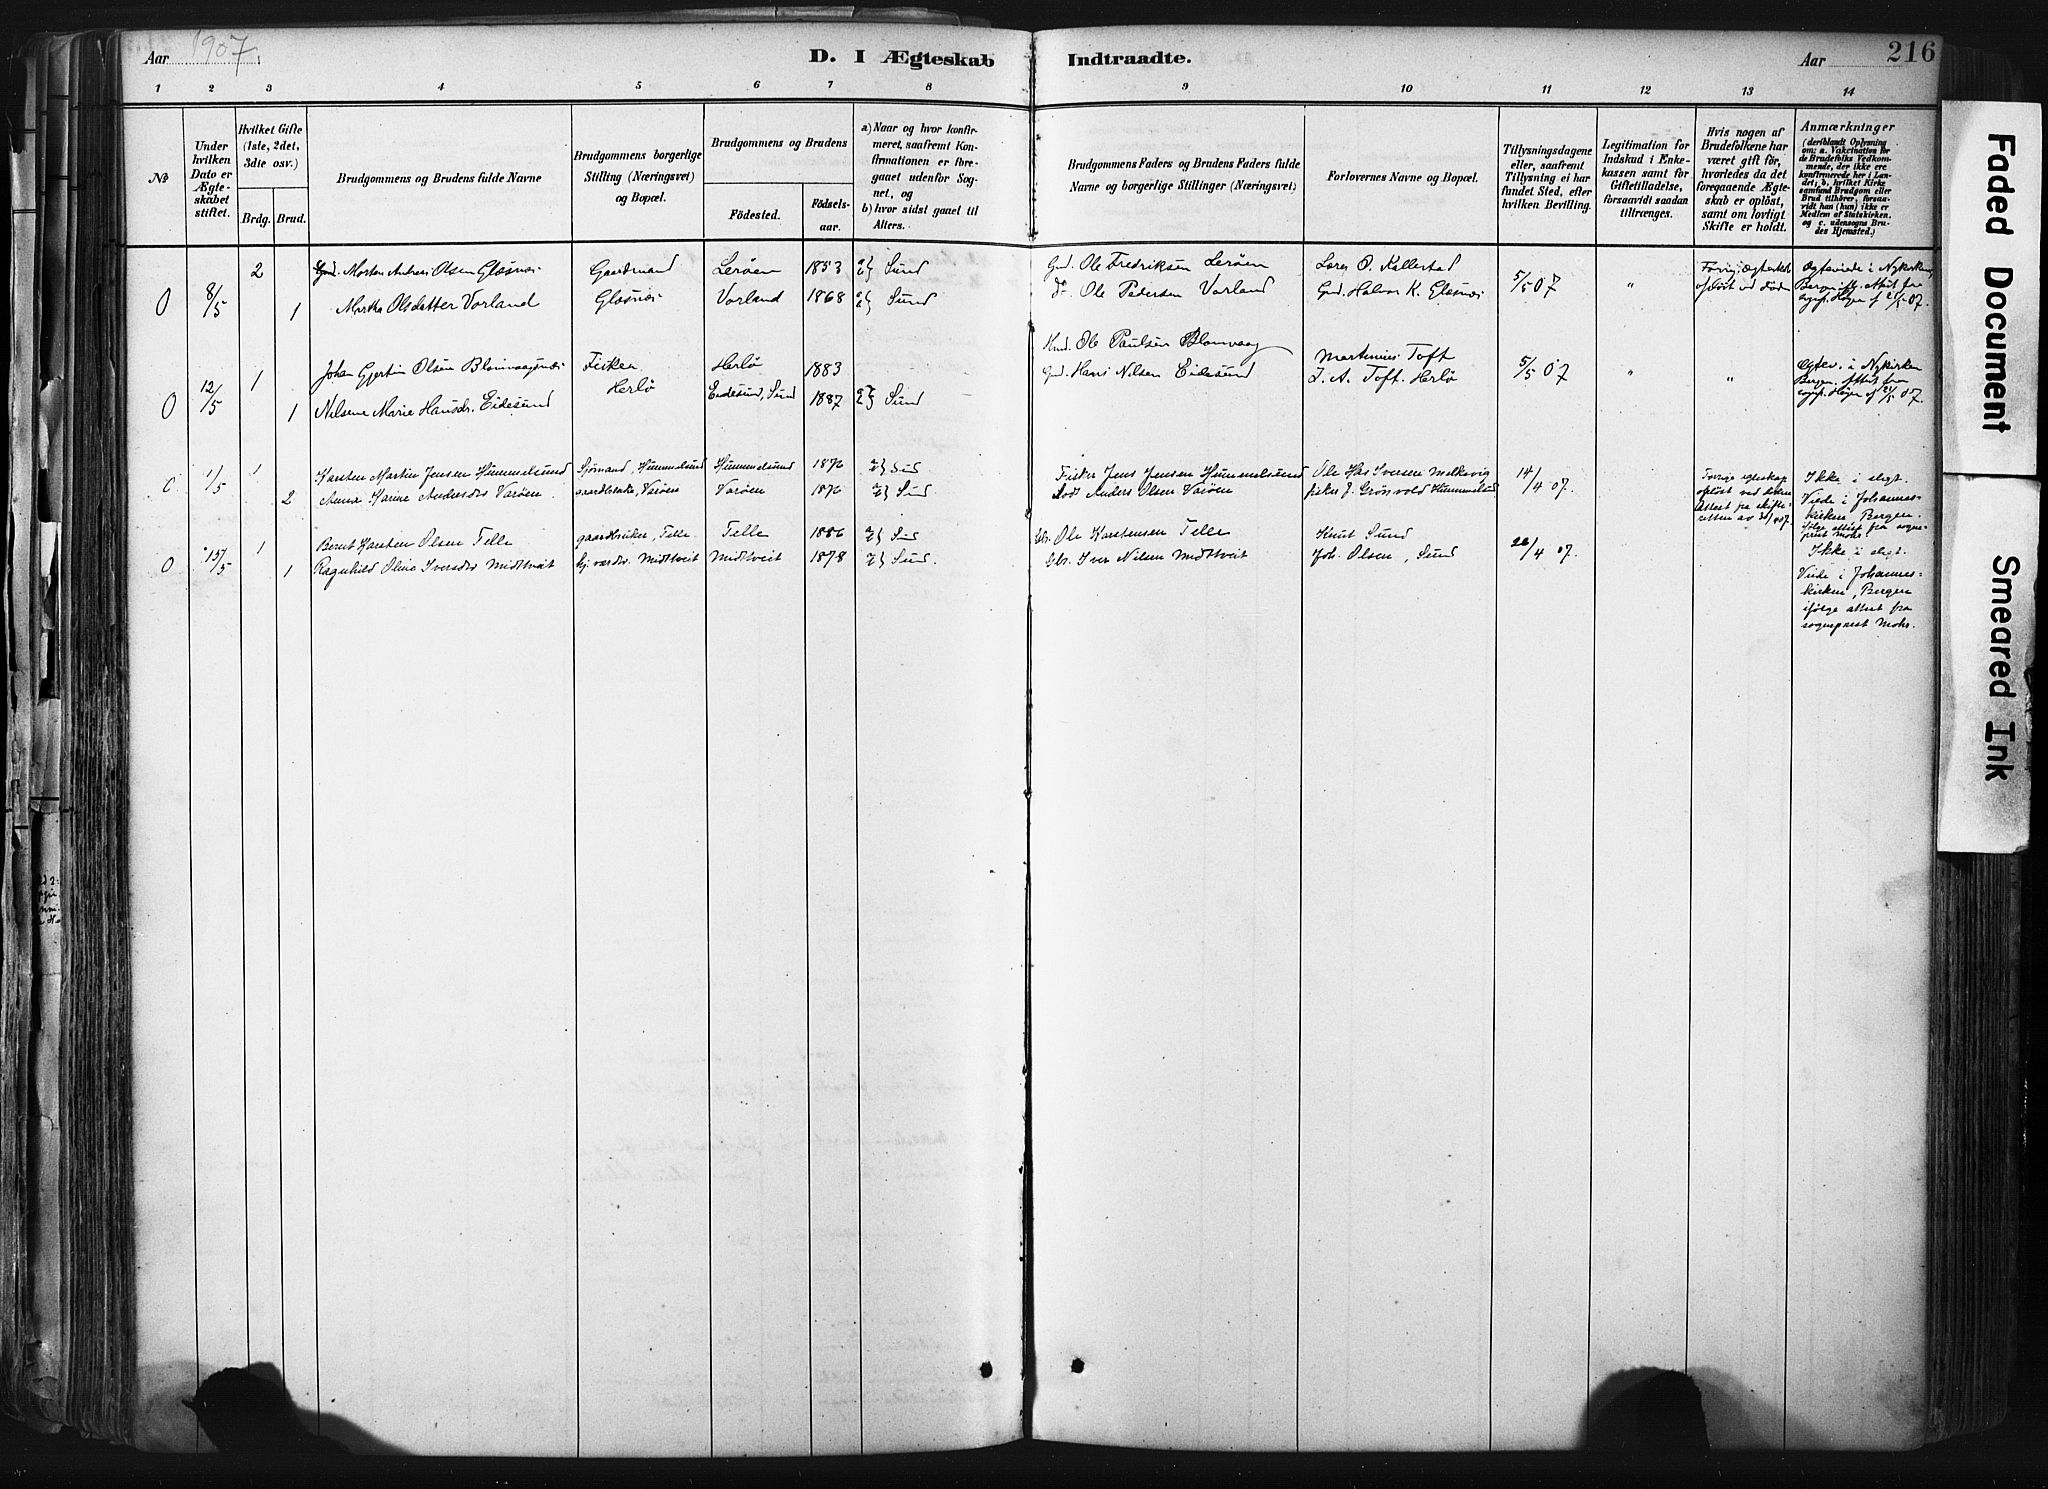 Aar 1907.
D. I Ægteskab Indtraadte.
Aar
216
1 2 3 4 5 6 7 8 9 10 11 12 13 14
No
Under hvilken Dato er Ægteskabet stiftet.
Hvilket Gifte (1ste, 2det, 3die osv.)
Brdg. Brud.
Brudgommens og Brudens fulde Navne
Brudgommens borgerlige Stilling (Næringsvei) og Bopæl.
Brudgommens og Brudens
Fødested. Fødselsaar.
a) Naar og hvor konfirmeret, saafremt Konfirmationen er foregaaet udenfor Sognet, og
b) hvor sidst gaaet til Alters.
Brudgommens Faders og Brudens Faders fulde Navne og borgerlige Stillinger (Næringsvei)
Forlovernes Navne og Bopæl.
Tillysningsdagene eller, saafremt Tillysning ei har fundet Sted, efter hvilken Bevilling.
Legitimation for Indskud i Enkekassen samt for Giftetilladelse, forsaavidt saadan tiltrænges.
Hvis nogen af Brudefolkene har været gift før, hvorledes da det foregaaende Ægteskab er opløst, samt om lovligt Skifte er holdt.
Anmærkninger (deriblandt Oplysning om: a. Vakcination for de Brudefolks Vedkommende, der ikke ere konfirmerede her i Landet; b, hvilket Kirkesamfund Brudgom eller Brud tilhører, forsaavidt han (hun) ikke er Medlem af Statskirken, og c. udensogns Brudes Hjemsted.)
2 Gmd. Morten Andreas Olsen Glæsnes Gaardmand Lerøen 1853 Sund Gmd. Ole Fredriksen Lerøen Lars O. Kallestad
0 8/5 1 Martha Olsdatter Vorland Glæsnes Vorland 1868 Sund Do Ole Pedersen Vorland Gmd. Halvor K. Glæsnes 5/5 07 "
Forrige ægteskab opløst ved døden
Ægteviede i Nykirken, Bergen
Johan Gjertin Olsen Blomvaagnes Fisker Herlø 1883 Kmd. Ole Paulsen Blomvaag Martinius Toft
0 12/5 1 1 Nilsene Marie Hansdr. Eidesund Herlø Eidesund, Sund 1887 Sund Gmd. Hans Nilsen Eidesund J. A. Toft, Herlø 5/5 07 " "
Ægtev. i Nykirken Bergen, attest fra
0 1/5 1 Karsten Martin Jensen Hummelsund Sjømand, Hummelsund Hummelsund 1876 Sund Fisker Jens Jensen Hummelsund Ole Has Iversen Melkevig
2 Anna Karine Andersdr Varøen gaardbruker, Varøen Varøen 1876 Sund Anders Olsen Varøen fisker J. Grønvold Hummelsund 14/4 07.
Forrige egteskap opløst ved døden Attest fra skifteretten av
Ikke i slegt. Viede i Johanneskirken, Bergen. ifølge attest fra sogneprest Mohr.
0 15/5 1 Bernt Karsten Olsen Telle gaardbruker, Telle Telle 1886 Sund Gbr. Ole Karstensen Telle Knut Sund
1 Ragnhild Olina Iversdr Midttveit Midttveit Midttveit 1878 Sund. Gbr. Iver Nilsen Midttveit Joh. Olsen, Sund 28/4 07.
Ikke i slegt. Viede i Johanneskirken, Bergen ifølge attest fra sogneprest Mohr.
Faded Document
Smeared Ink